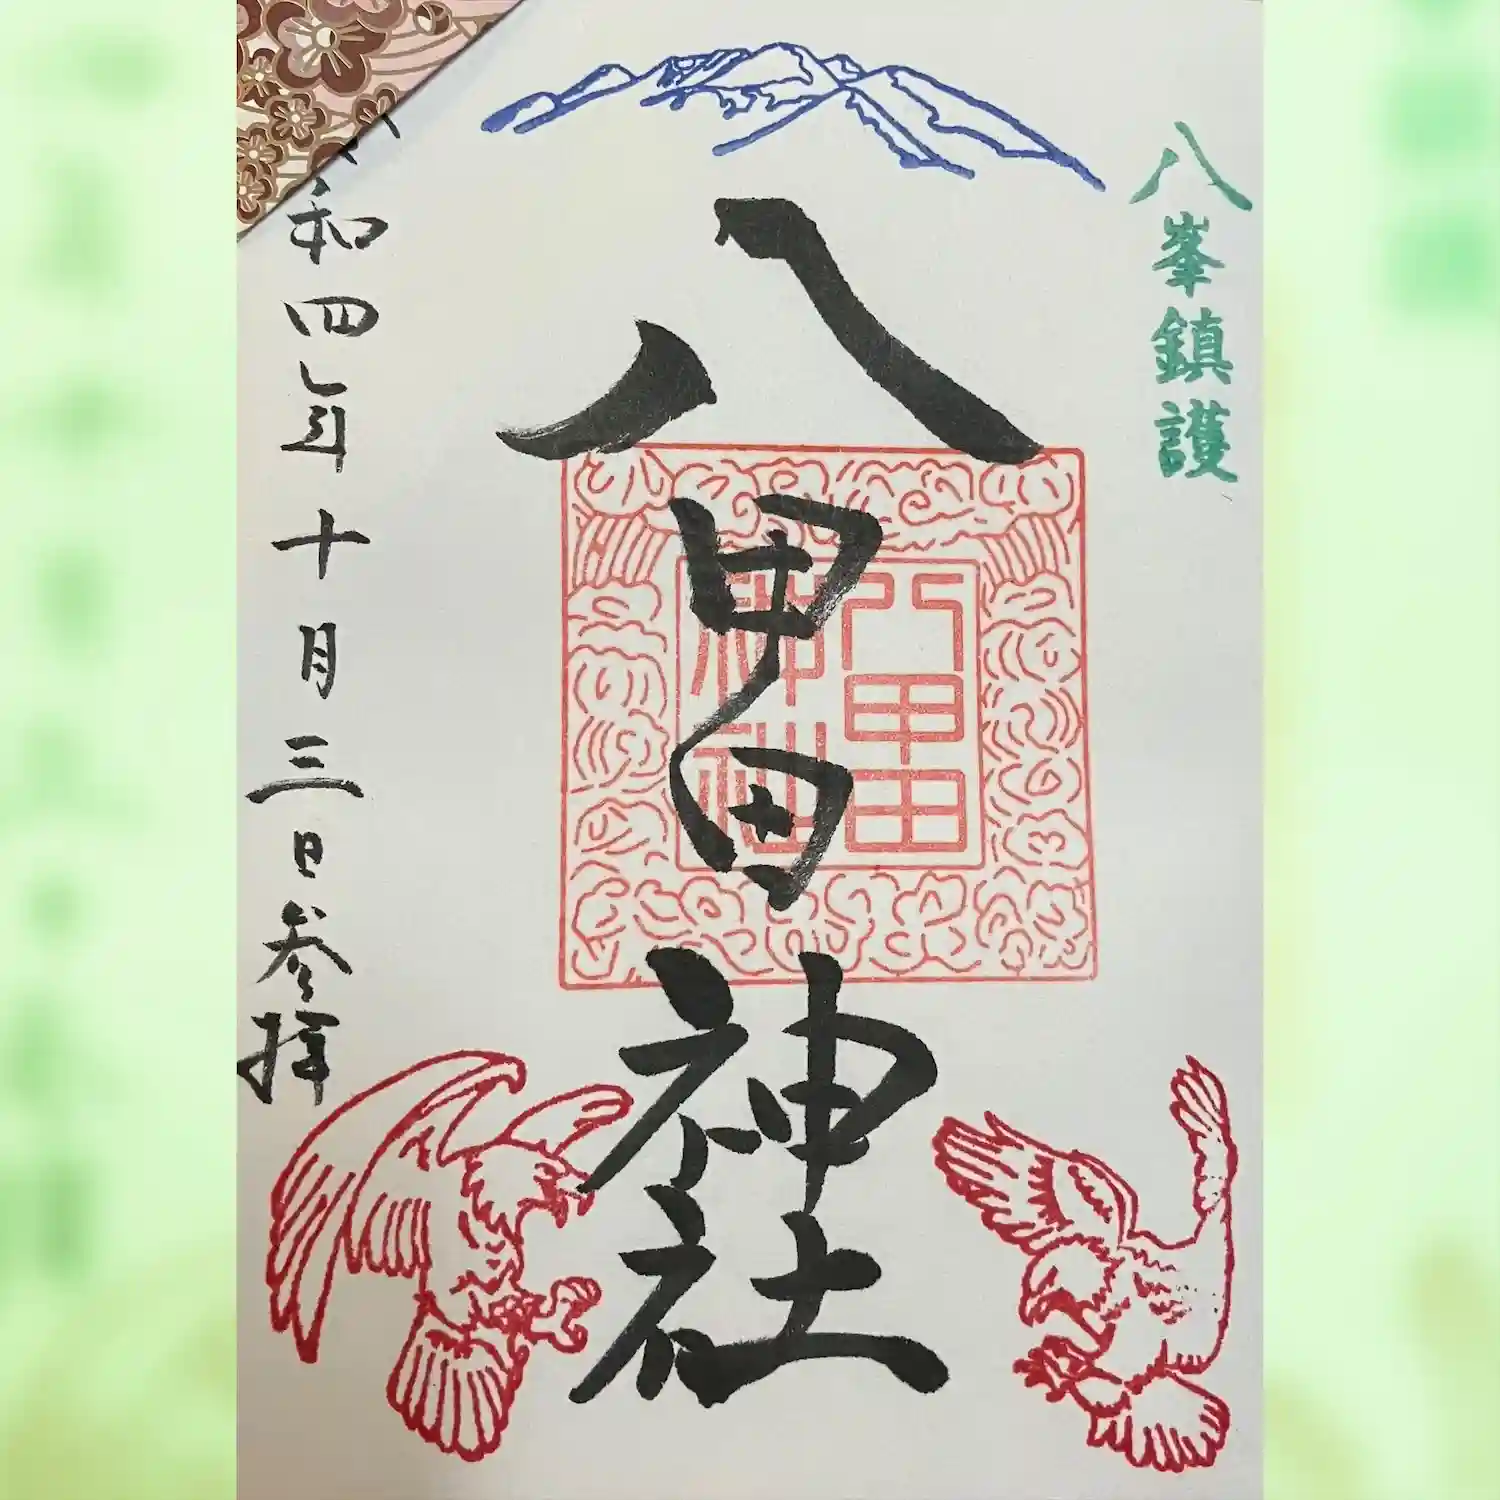 八峯鎮護
八甲田神社
八甲田
神社
和四年十月三日参拝